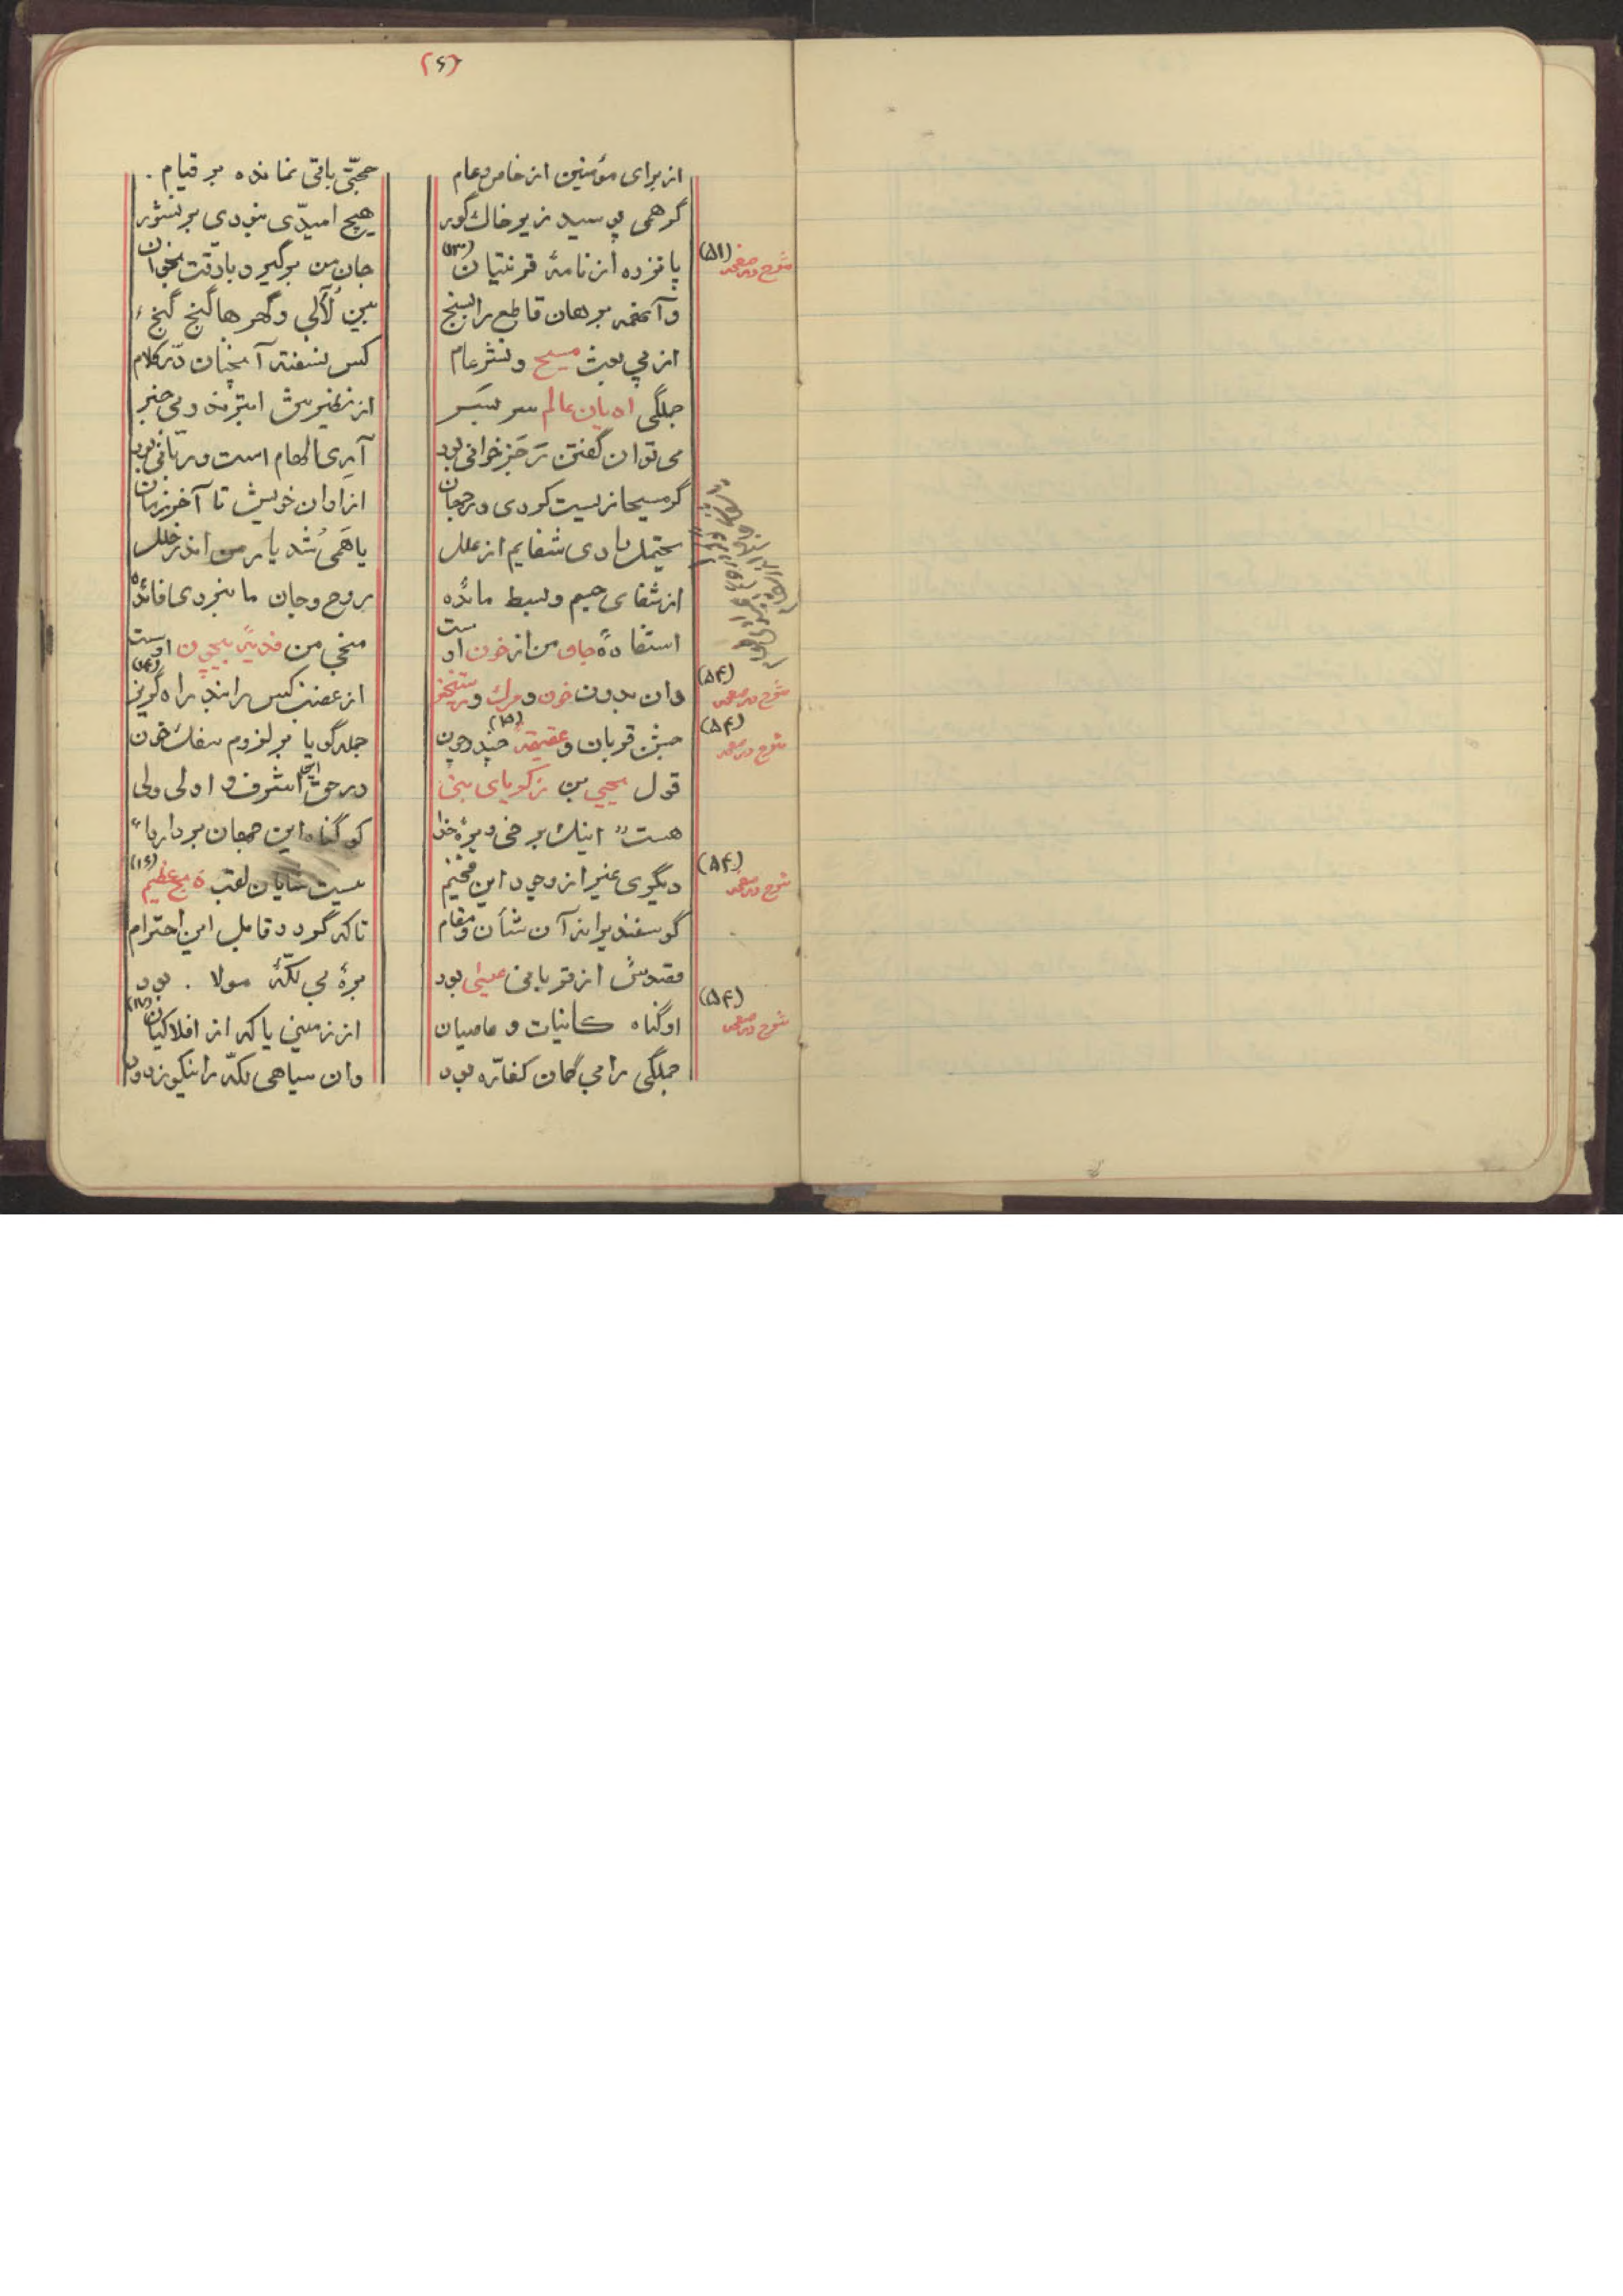 (۶)
از برای مؤمنین از خاص و عام
حجتّی باقی نمانده بر قیام .
گر همی پوسید زیر خاک گور
هیچ امیدّی نبودی بر نشور
شرح در صفحه (۵۱)
پانزده از نامهٔ قرنتیان (۱۳)
جان من برگیر و با دقّت بخوان
و آنهمه برهان قاطع را بسنج
بین لُآلی و گهرها گنج گنج
از پی بعث مسیح و نشر عام
کس نسفته آنچنان دُر کلام
جملگی ادیان عالم سر بسَر
از نظیرش ابترند و بی خبر
می توان گفتن رَجَز خوانی بود
آری الهام است و ربّانی بود
گر مسیحا زیست کردی در جهان
از اوان خویش تا آخر زمان
یحتمل دادی شفایم از علل
یا همی شد یار من اندر خلل
از شفای جسم و بسط مائده
روح و جان ما نبردی فائده
استفادهٔ جان من از خون اوست
منجی من فدیهٔ بیچون اوست
شرح در صفحه (۵۴)
وان بدون خون و مرگ و رستخیز
از غضب کس را نبد راه گریز (۱۴)
شرح در صفحه (۵۴)
جشن قربان و عقیقه (۱۵) چند و چون
جمله گویا بر لزوم سفک خون
قول یحیی بن زکریای نبی
در حق آن اشرف و اولی ولی
هست " اینک برخی و برهٔ خدا
کو گناه این جهان بردارد "
شرح در صفحه (۵۴)
دیگری غیر از وجود این فخیم
نیست شایان لقب ذبح عظیم (۱۶)
گوسفند براند آن شأن و مقام
تا که گردد قابل این احترام
مقصدش از قربانی عیسی بود
برهٔ بی لکّهٔ مولا . بود
شرح در صفحه (۵۴)
او گناه کائنات و عاصیان
از زمینی یا که از افلاکیان (۱۷)
جملگی را بی گمان کفاّره بود
وان سیاهی لکّه را نیکو زدود